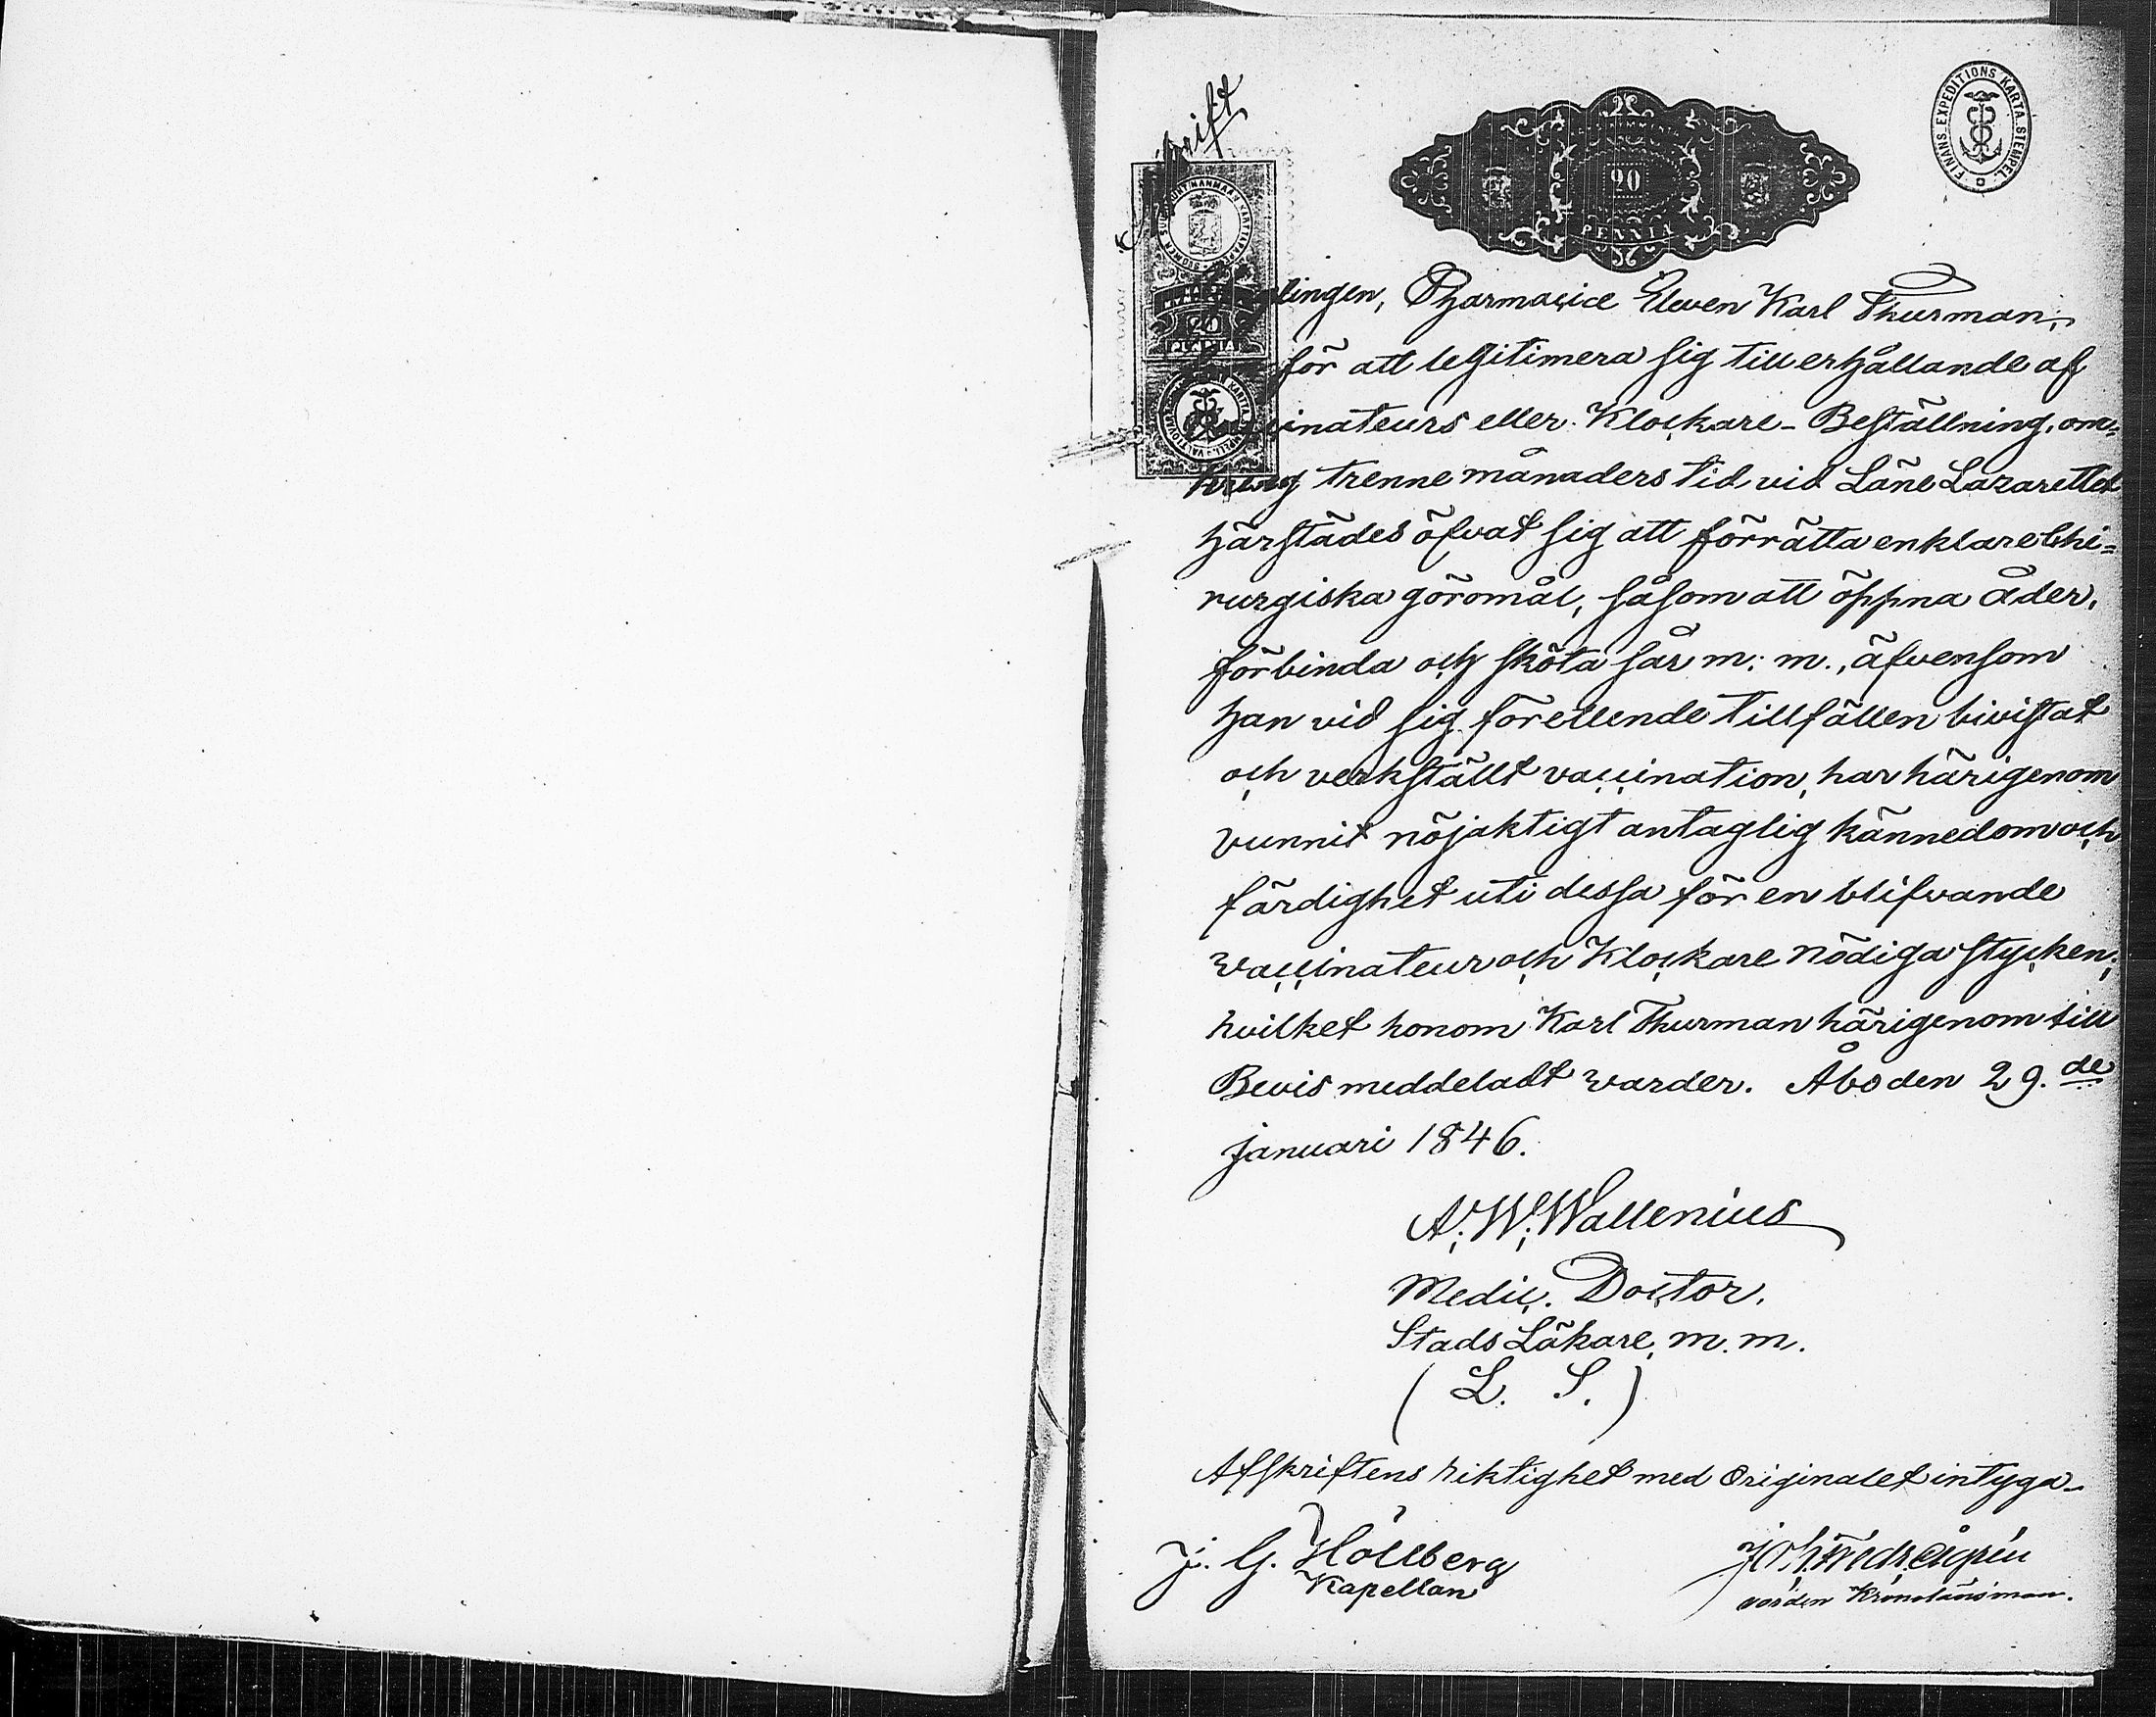 Afskrift
FINANS EXPEDITIONS KARTA.STEMPEL.
20
PENNIÄ
20
PENNIÄ
Ynglingen, Pharmaciæ Eleven Karl Thurman,
som för att legitimera sig till erhållande af
Vaccinateurs eller Klockare-Beställning, om-
kring trenne månaders tid vid Läne Lazarettet
härstädes öfvat sig att förrätta enklare Chi-
rurgiska göromål, såsom att öppna åder,
förbinda och sköta sår m. m., äfvensom
han vid sig företeende tillfällen bivistat
och verkställt vaccination, har härigenom
vunnit nöjaktigt antaglig kännedom och
färdighet uti dessa för en blifvande
Vaccinateur och Klockare nödiga stycken;
hvilket honom Karl Thurman härigenom till
Bevis meddeladt warder. Åbo den 29.de
januari 1846.
A. W. Wallenius
Medic. Doctor.
Stads Läkare, m. m.
( L. S. )
Afskriftens riktighet med Originalet intyga
J. G. Hollberg
Kapellan
Joh. Fredr. Ågren
Kronolänsman.